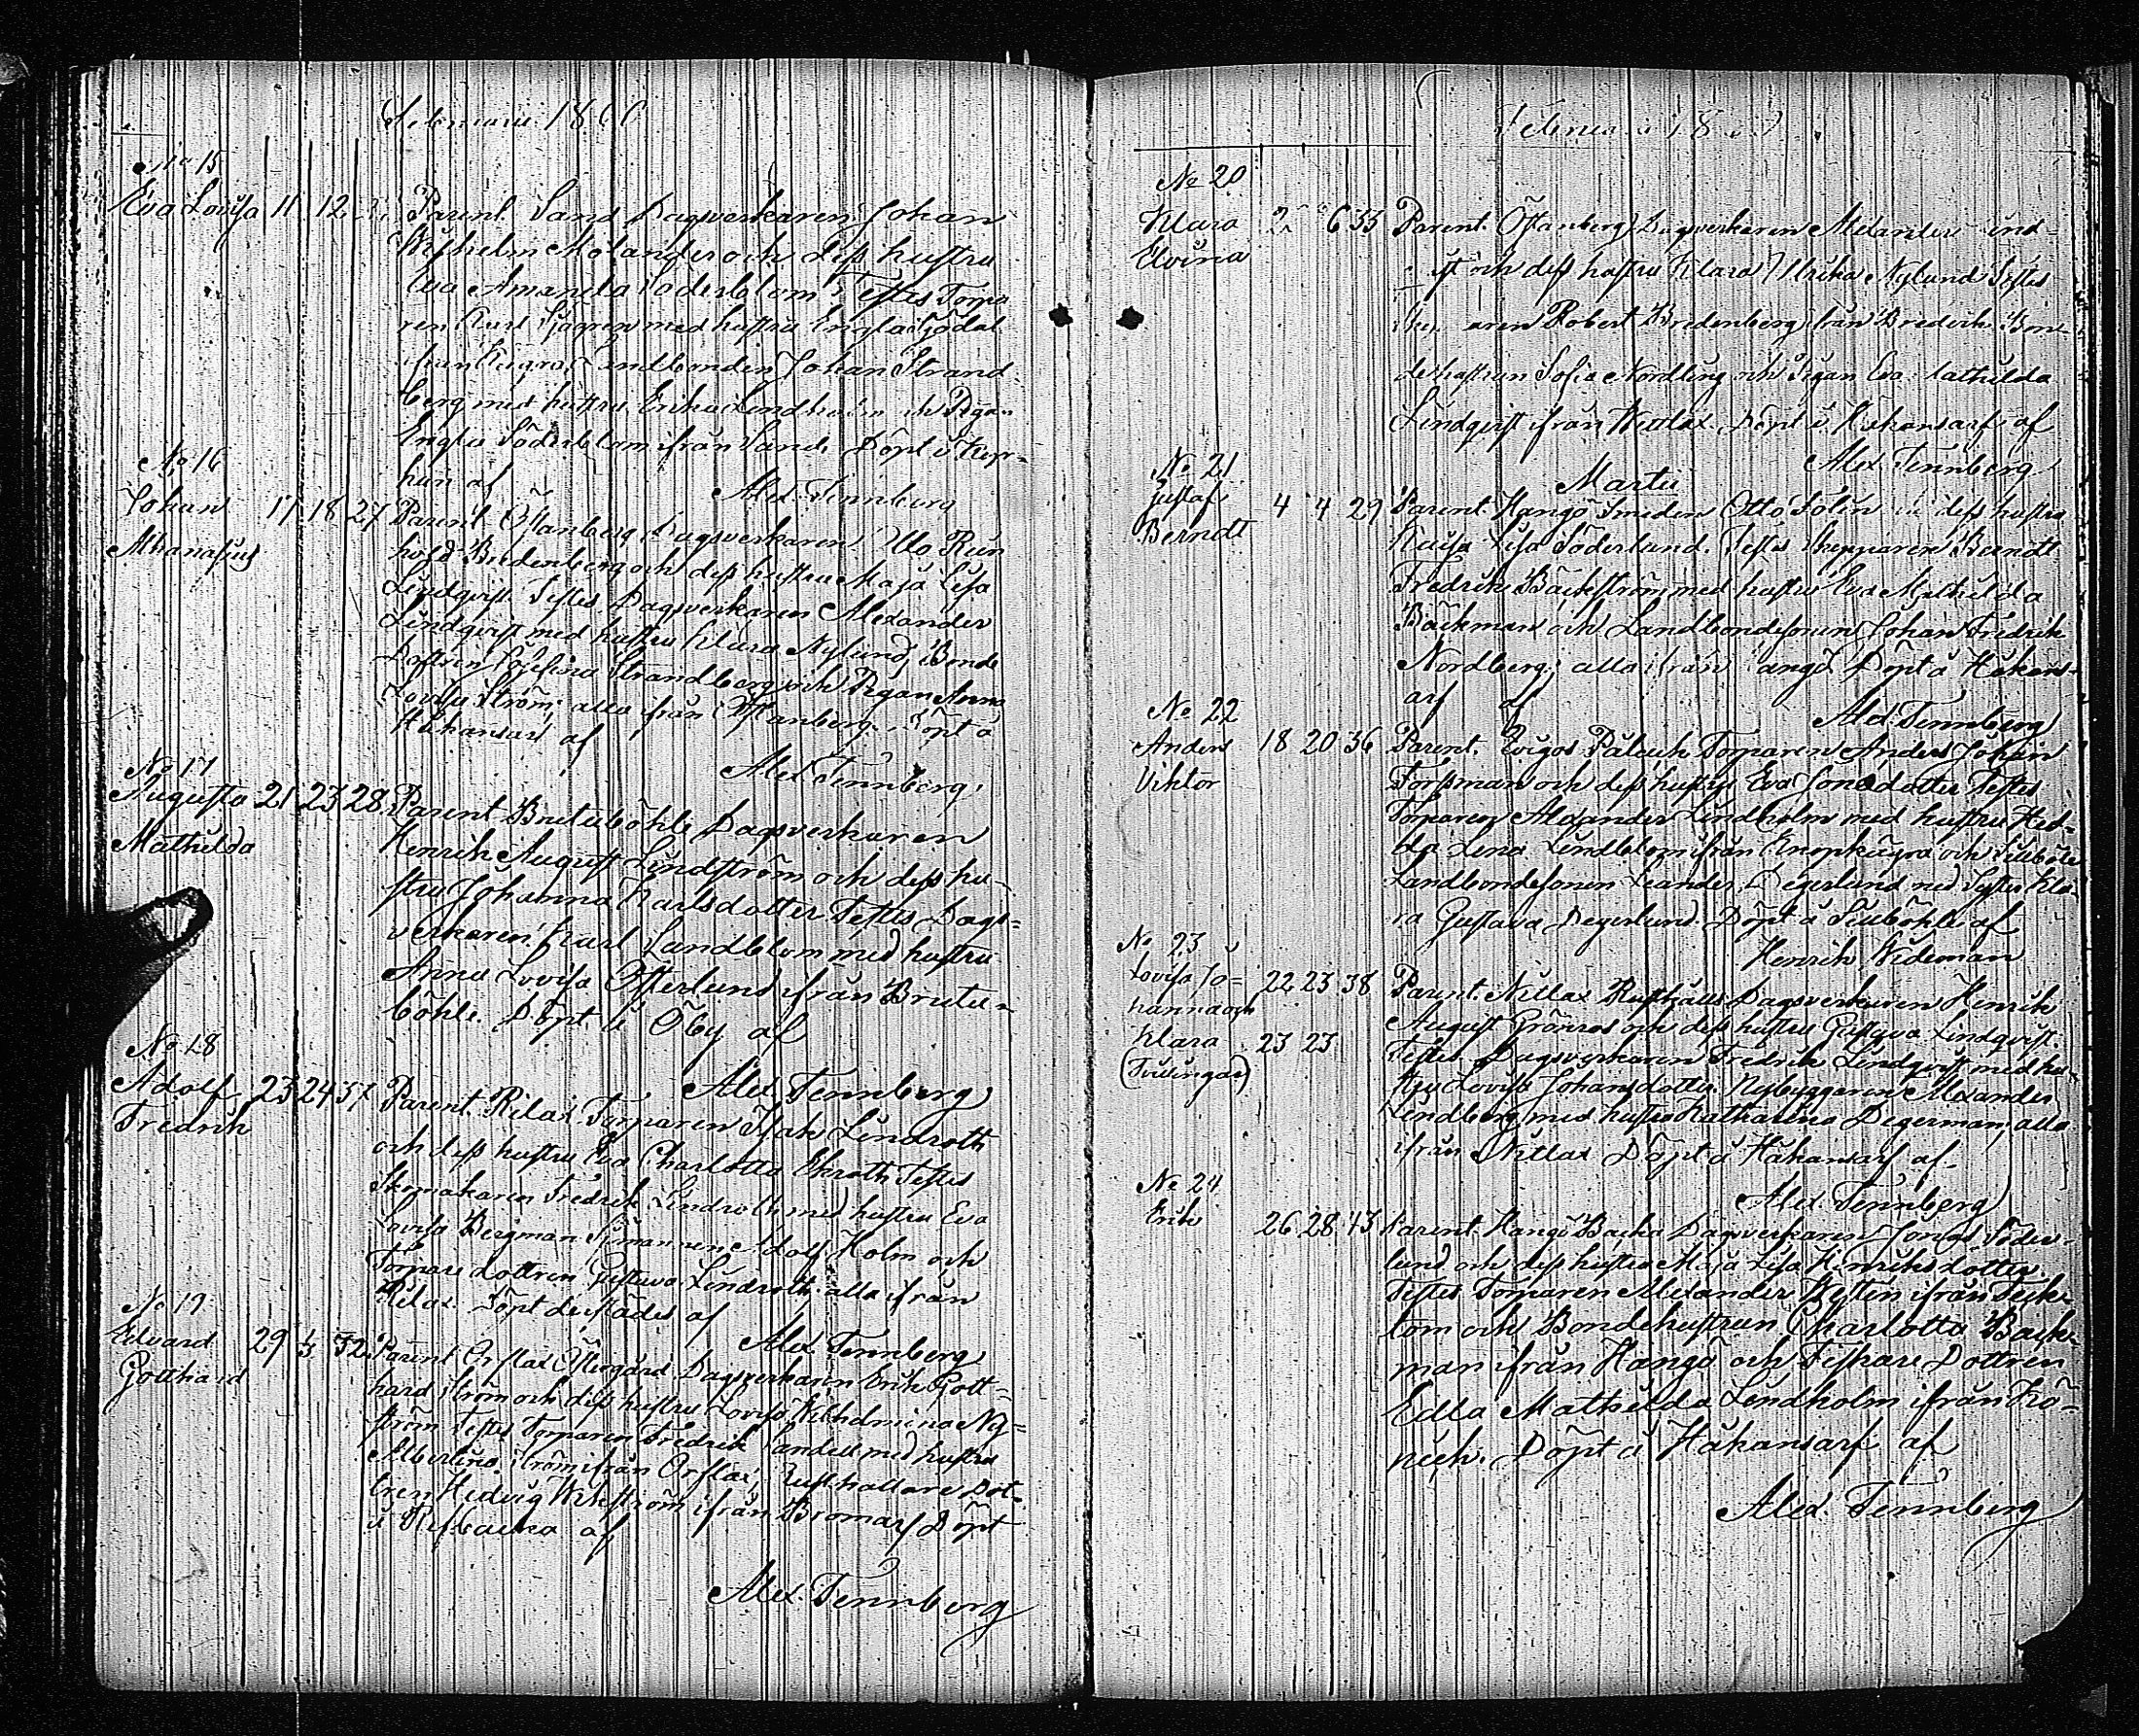 Februarii 1860
No 15
Eva Lovisa 11 12 Parent. Sand Dagsverkaren Johan
Wilhelm Molander och dess hustru
Eva Amanda Söderblom. Testes Torpa
ren Karl Sjögren med hustru Engla Sjödal
från Landbonden Johan Strand
berg med hustru Erika Lindholm och Pigan
Engla Söderblom ifrån Sand. Döpt i Kyr-
kan af
Alex. Tennberg
No 16
Johan 17 18 27 Parent. Östanberg Dagsverkaren
Athanasius
Bredenberg och dess hustru Maja Lisa
Lindqvist. Testes Dagsverkaren Alexander
Lindqvist med hustru Klara Nylund, Bonde
Dottren Josefina Strandberg och Pigan Anna
Lovisa Ström; alla ifrån Östanberg. Döpt å
Håkansarf af
Alex. Tennberg.
No 17
Augusta 21 23 28 Parent. Brutuböhle Dagsverkaren
Mathilda
Henrik August Lindström och dess hu-
stru Johanna Karlsdotter Testes Dags-
verkaren Karl Sandblom med hustru
Anna Lovisa Österlund ifrån Brutu-
böhle. Döpt å Öby af
Alex. Tennberg
No 18
Adolf 23 24 37 Parent. Rilax Torparen Isak Lindroth
Fredrik
och dess hustru Eva Charlotta Ekroth Testes
Skomakaren Fredrik Lindroth med hustru Eva
Lovisa Bergman Sjömannen Adolf Holm och
Torpare dottren Gustava Lindroth; alla ifrån
Rilax. Döpt derstädes af
Alex. Tennberg
No 19
Edvard 29 32 Parent. Östergård Dagsverkaren Erik Gott-
Gotthard
hard Ström och dess hustru Lovisa Vilhelmina Ny-
ström Testes Torparen Fredrik Sandell med hustru
Albertina Ström ifrån Orslax, Rusthållare Dot-
tren Hedvig Wikström ifrån Bromarf Döpt
å Refbacka af
Alex. Tennberg
Februarii
No 20
Klara 2 6 33 Parent. Östanberg Dagsverkaren Alexander Lind-
Elvina
qvist och dess hustru Klara Ulrika Nylund Testes
Robert Bredenberg från Bredvik Bon-
dehustrun Sofia Nordling och Pigan Eva Mathilda
Lindqvist ifrån Nittlax. Döpt å Håkansarf af
Alex Tennberg
Martii
No 21
Gustaf 4 4 29 Parent. Hangö Smeden Otto Solin och dess hustru
Berndt
Kajsa Lisa Söderlund. Testes Skepparen Berndt
Fredrik Bäckström med hustru Eva Mathilda
Bäckman och Landbondesonen Johan Fredrik
Nordberg; alla ifrån Hangö. Döpt å Håkans-
arf af
Alex Tennberg
No 22
Anders 18 20 36 Parent. Torparen Anders Johan
Viktor
Forssman och dess hustru Eva Jonsdotter Testes
Torparen Alexander Lindholm med hustru Hed-
da Lena Lindblom ifrån Knopkägra och
Landbondesonen Leander Degerlund med Syster Kla-
ra Gustava Degerlund. Döpt å af
Henrik Wideman
No 23
Lovisa Jo- 22 23 38 Parent. Nitlax Rusthålls Dagsverkaren Henrik
hanna och
August Grönros och dess hustru Gustava Lindqvist.
Klara 23 23
Testes Dagsverkaren Fredrik Lindqvist med hu-
(Tvillingar)
stru Lovisa Johansdotter, Nybyggaren Alexander
Lindberg med hustru Katharina Degerman, alla
ifrån Nitlax Döpt å Håkansarf af
Alex. Tennberg
No 24
Erik 26 28 43 Parent. Hangö Backa Dagsverkaren Jonas Söder-
lund och dess hustru Maja Lisa Henriksdotter
Testes Torparen Alexander Westin ifrån
tom och Bondehustrun Charlotta Back-
man ifrån Hangö och Dottren
Edla Mathilda Lindholm ifrån
Döpt å Håkansarf af
Alex. Tennberg